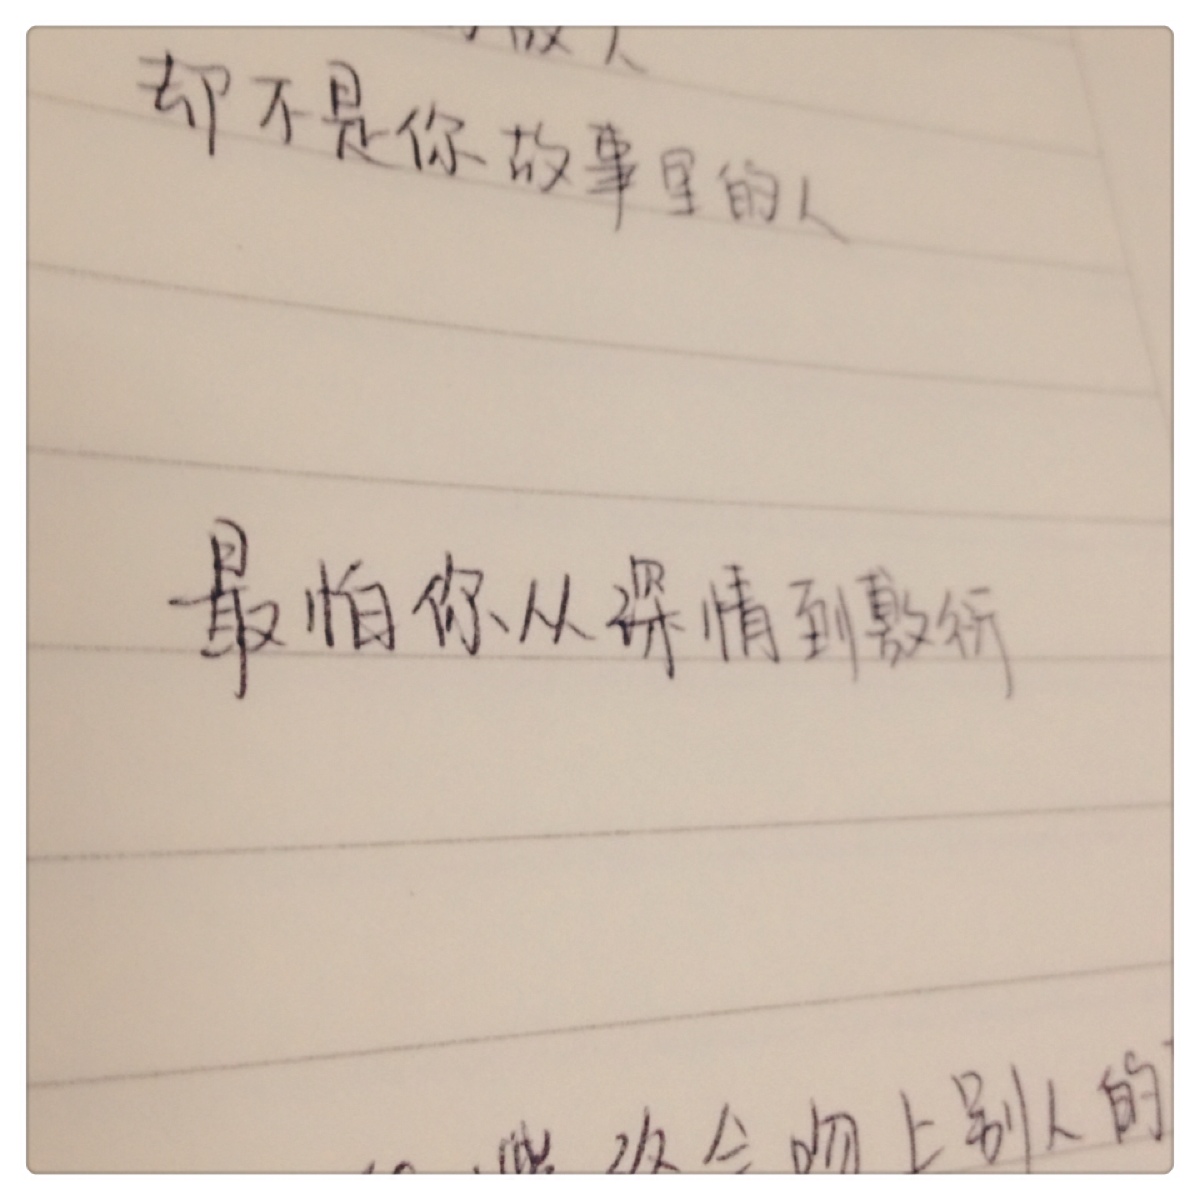 故人
却不是你故事里的人
最怕你从深情到敷衍
会吻上别人的